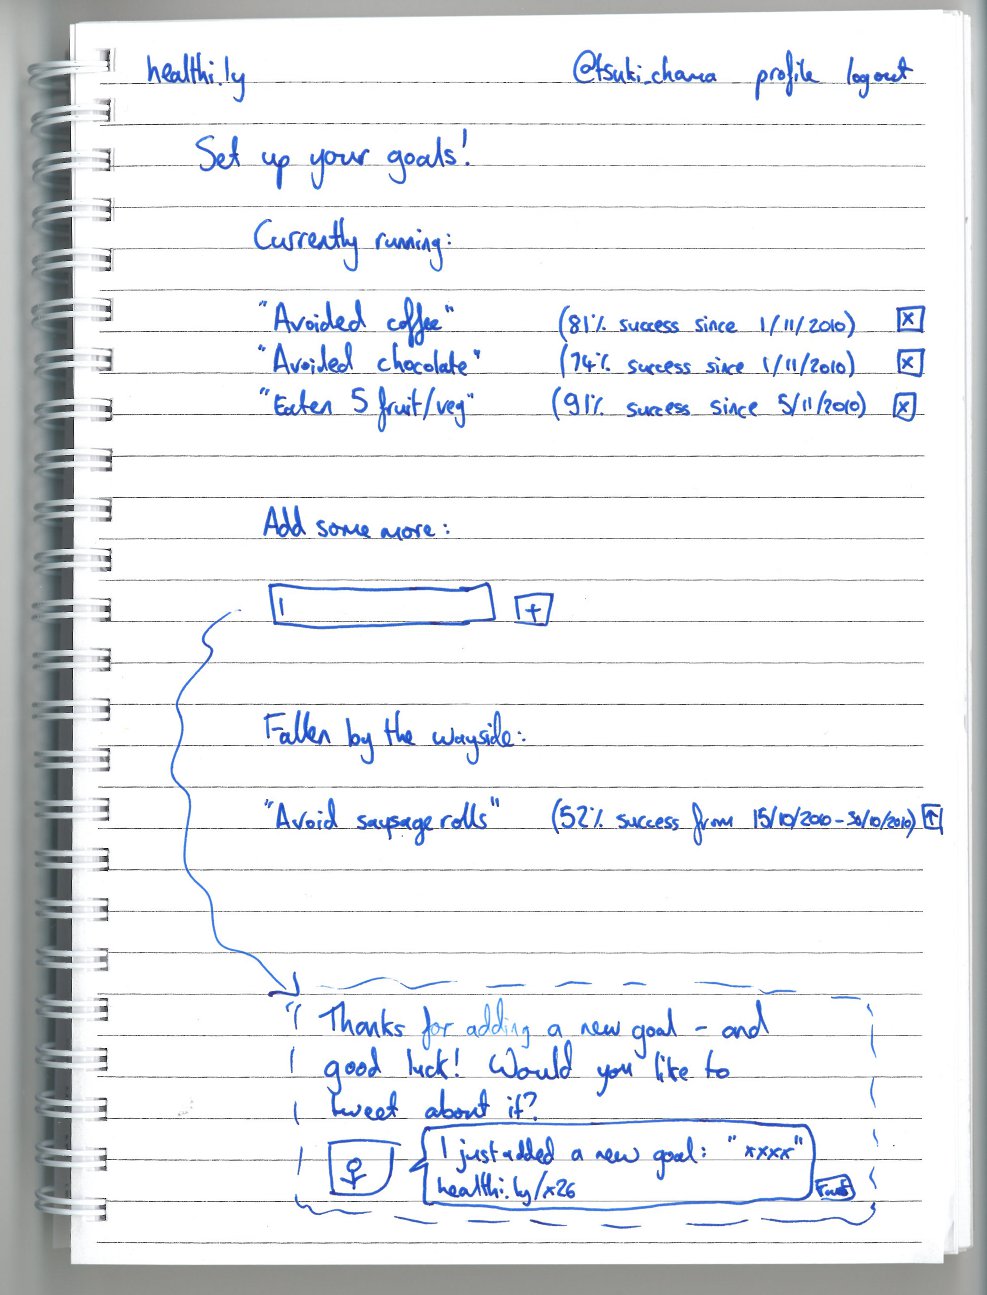 healthi.ly @tsuki_chama profile logout
Set up your goals!
Currently running:
"Avoided coffee" (81% success since 1/11/2010) x
"Avoided chocolate" (74% success since 1/11/2010) x
"Eaten 5 fruit/veg" (91% success since 5/11/2010) x
Add some more:
+
Fallen by the wayside:
"Avoid sausage rolls" (52% success from 15/10/2010 - 30/10/2010) ↑
Thanks for adding a new goal - and
good luck! Would you like to
tweet about it?
I just added a new goal: "xxxx"
healthi.ly/x26